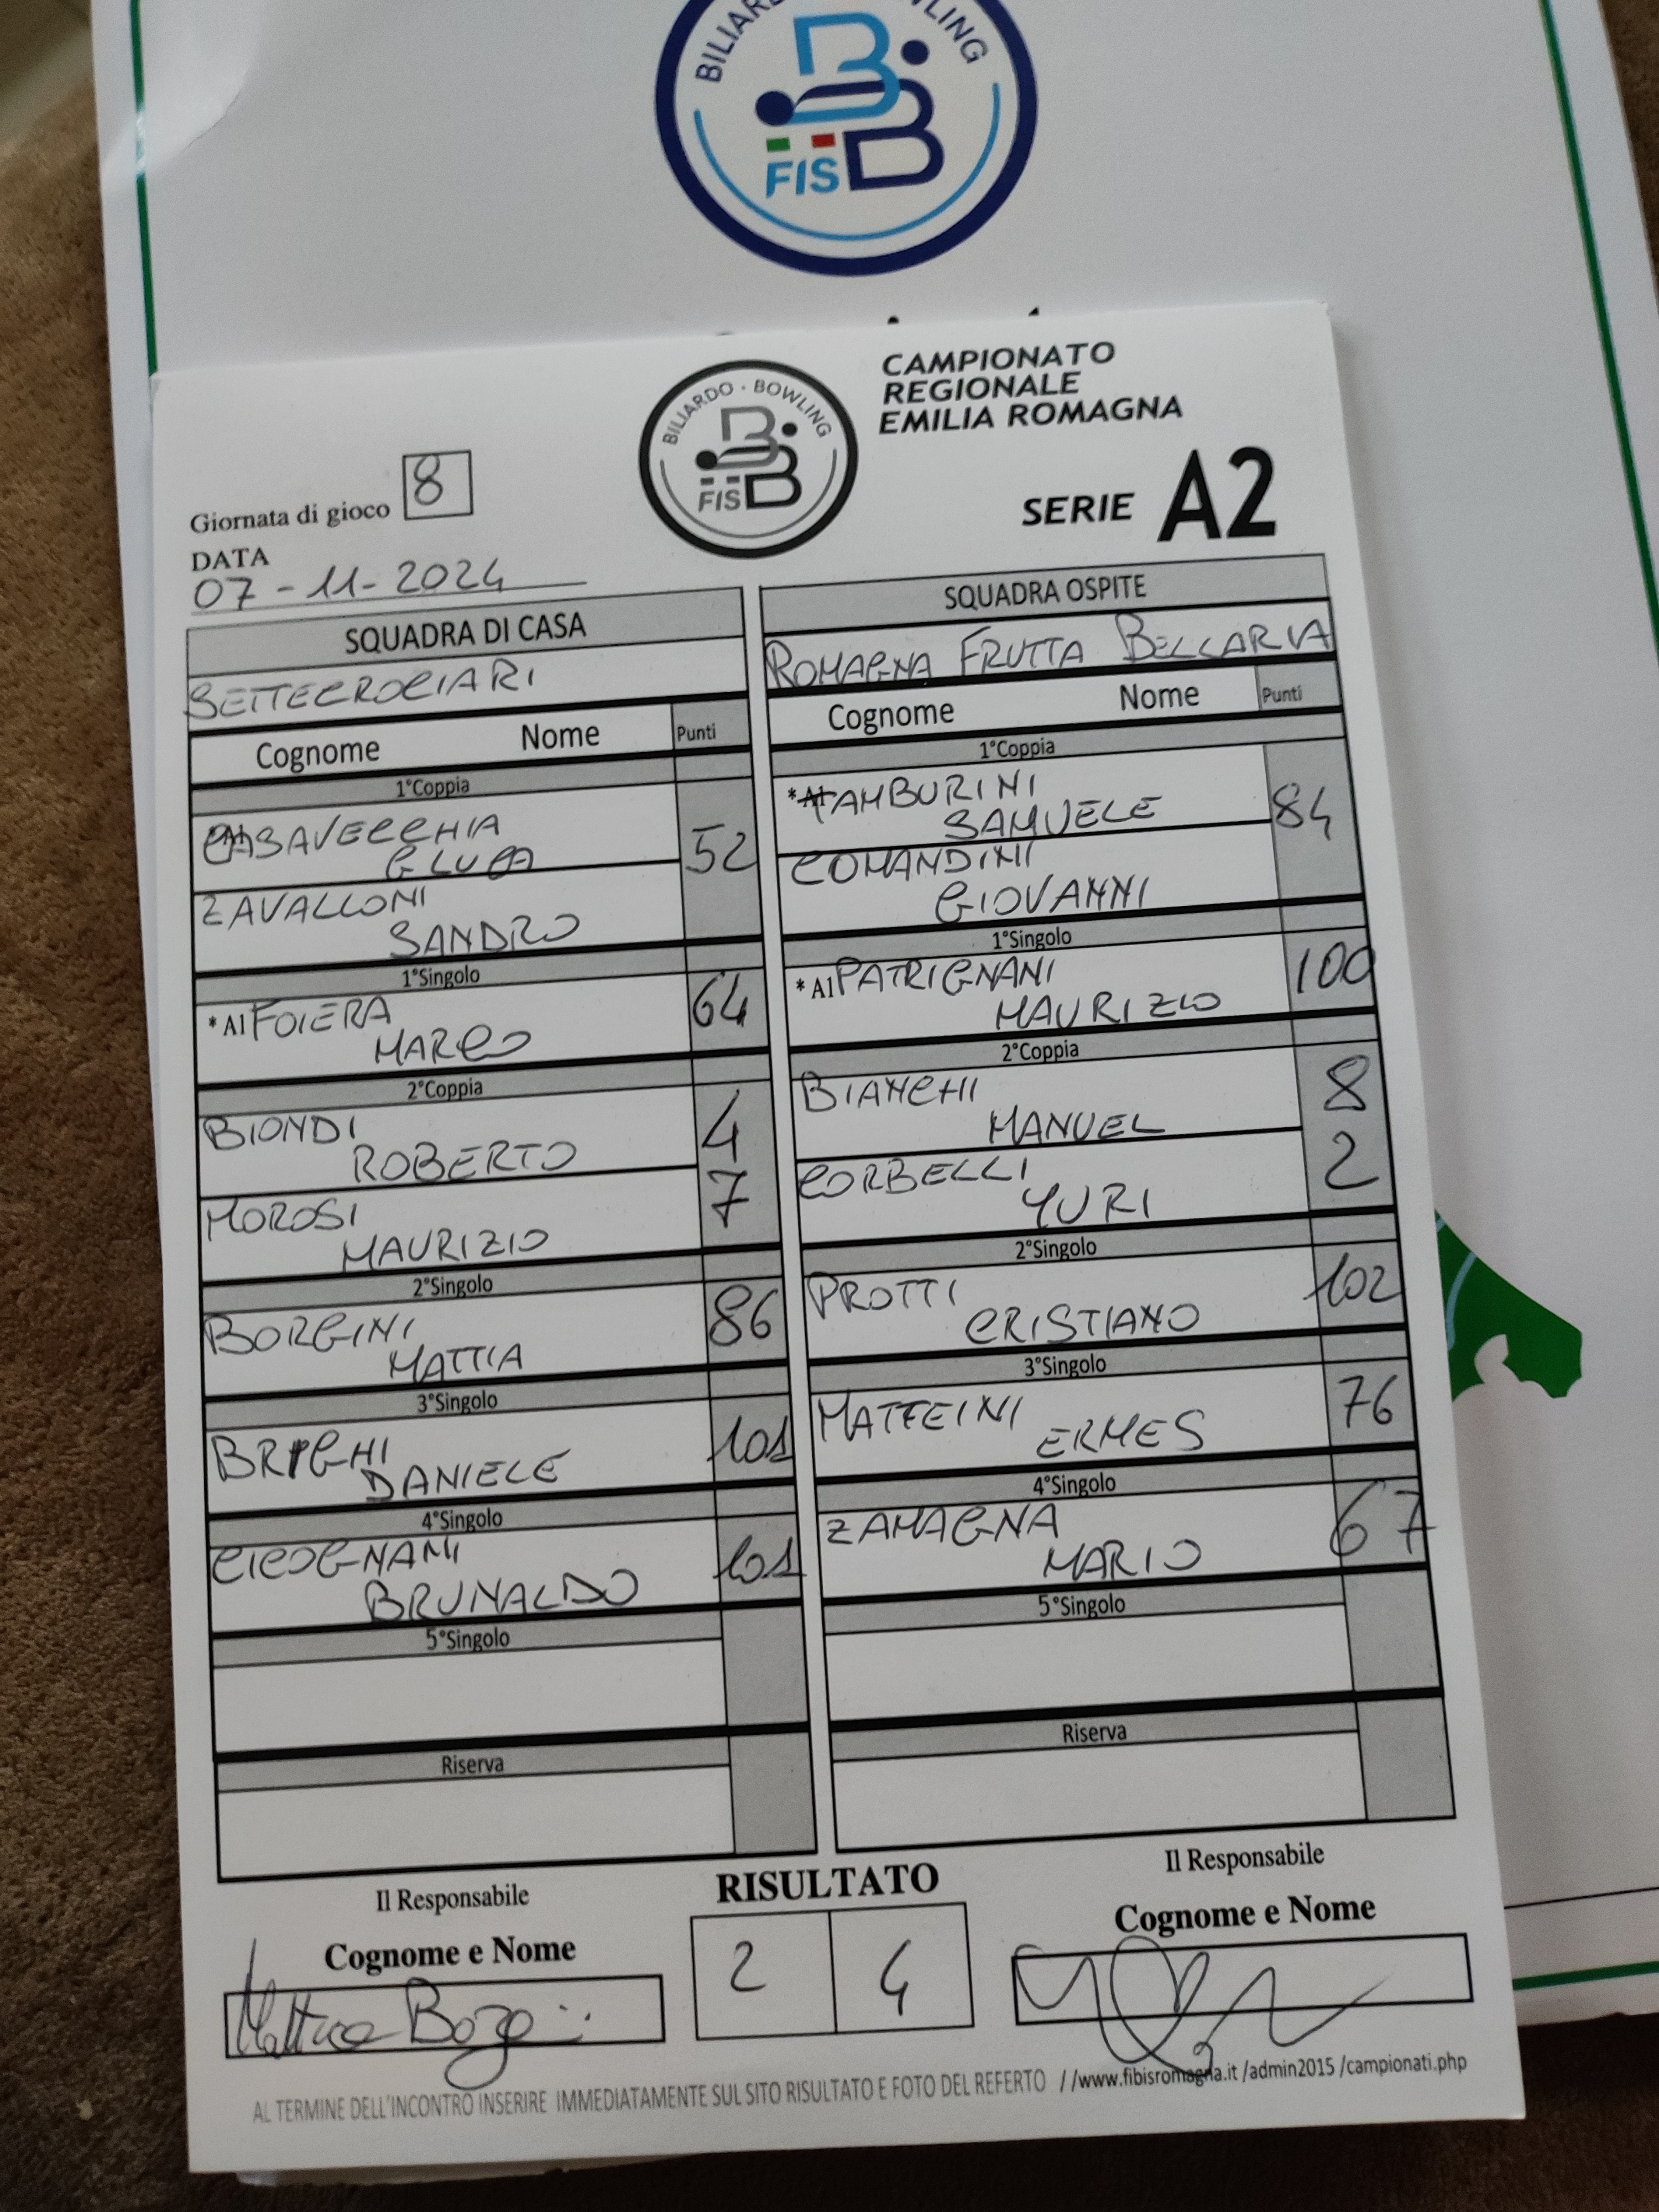 BILIARDO BOWLING
FISBB
CAMPIONATO
REGIONALE
EMILIA ROMAGNA
BILIARDO · BOWLING
FISBB
SERIE A2
Giornata di gioco 8
DATA
07-11-2024
SQUADRA DI CASA
SETTECROCIARI
Cognome Nome Punti
1°Coppia
CASAVECCHIA
GLUCA 52
ZAVALLONI
SANDRO
1°Singolo
*A1 FOIERA
MARCO 64
2°Coppia
BIONDI
ROBERTO 4
MOROSI
MAURIZIO 7
2°Singolo
BORGINI
MATTIA 86
3°Singolo
BRIGHI
DANIELE 101
4°Singolo
CICOGNANI
BRUNALDO 101
5°Singolo
Riserva
SQUADRA OSPITE
ROMAGNA FRUTTA BELLARIA
Cognome Nome Punti
1°Coppia
*A1 TAMBURINI
SAMUELE 84
COMANDINI
GIOVANNI
1°Singolo
*A1 PATRIGNANI
MAURIZIO 100
2°Coppia
BIANCHI
MANUEL 8
CORBELLI
YURI 2
2°Singolo
PROTTI
CRISTIANO 102
3°Singolo
MAFFEINI
ERMES 76
4°Singolo
ZAMAGNA
MARIO 67
5°Singolo
Riserva
Il Responsabile
Cognome e Nome
RISULTATO
2 4
Il Responsabile
Cognome e Nome
AL TERMINE DELL'INCONTRO INSERIRE IMMEDIATAMENTE SUL SITO RISULTATO E FOTO DEL REFERTO //www.fibisromagna.it /admin2015 /campionati.php